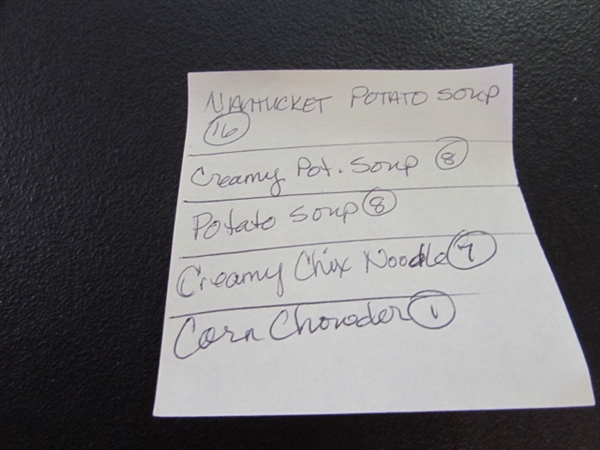 NANTUCKET POTATO SOUP
16
Creamy Pot. Soup 8
Potato Soup 8
Creamy Chix Noodle 7
Corn Chowder 1